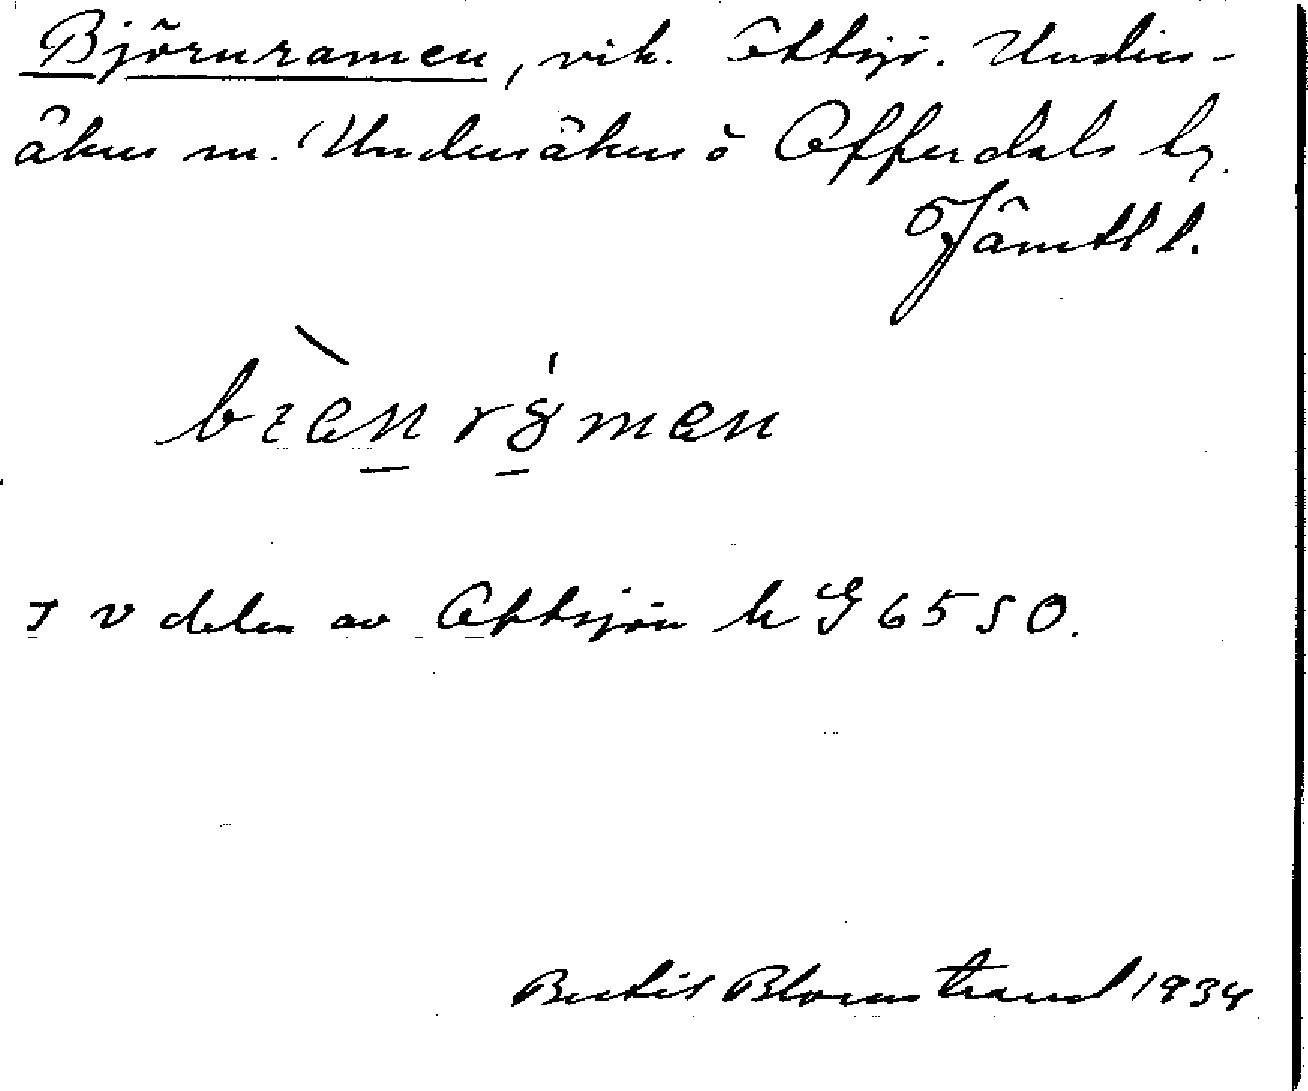 Björnramen, vik. Ottsjö. Unders-
åkers sn. Undersåkers o Offerdals tg.
Jämtl l.
I v delen av Ottsjön kG 6550.
Bertil Blomstrand 1934